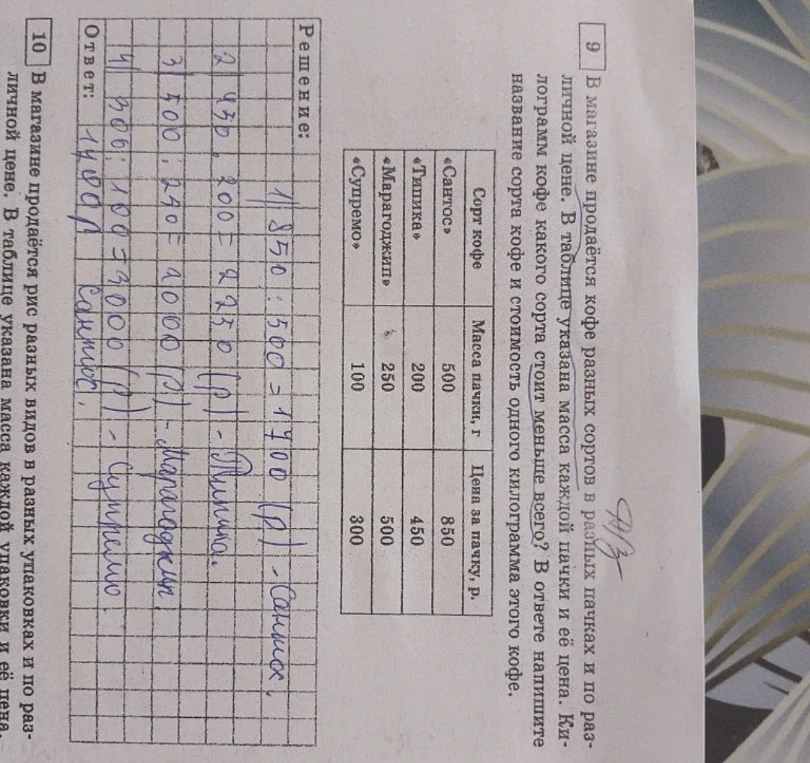 Д/З
9 В магазине продаётся кофе разных сортов в разных пачках и по раз-
личной цене. В таблице указана масса каждой пачки и её цена. Ки-
лограмм кофе какого сорта стоит меньше всего? В ответе напишите
название сорта кофе и стоимость одного килограмма этого кофе.
Сорт кофе Масса пачки, г Цена за пачку, р.
«Сантос» 500 850
«Типика» 200 450
«Марагоджип» 250 500
«Супремо» 100 300
Решение:
1) 850 : 500 = 1700 (р) - Сантос.
2) 450 : 200 = 2250 (р) - Типика.
3) 500 : 250 = 2000 (р) - Марагоджип.
4) 300 : 100 = 3000 (р) - Супремо.
Ответ: 1700р Сантос.
10 В магазине продаётся рис разных видов в разных упаковках и по раз-
личной цене. В таблице указана масса каждой упаковки и её цена.